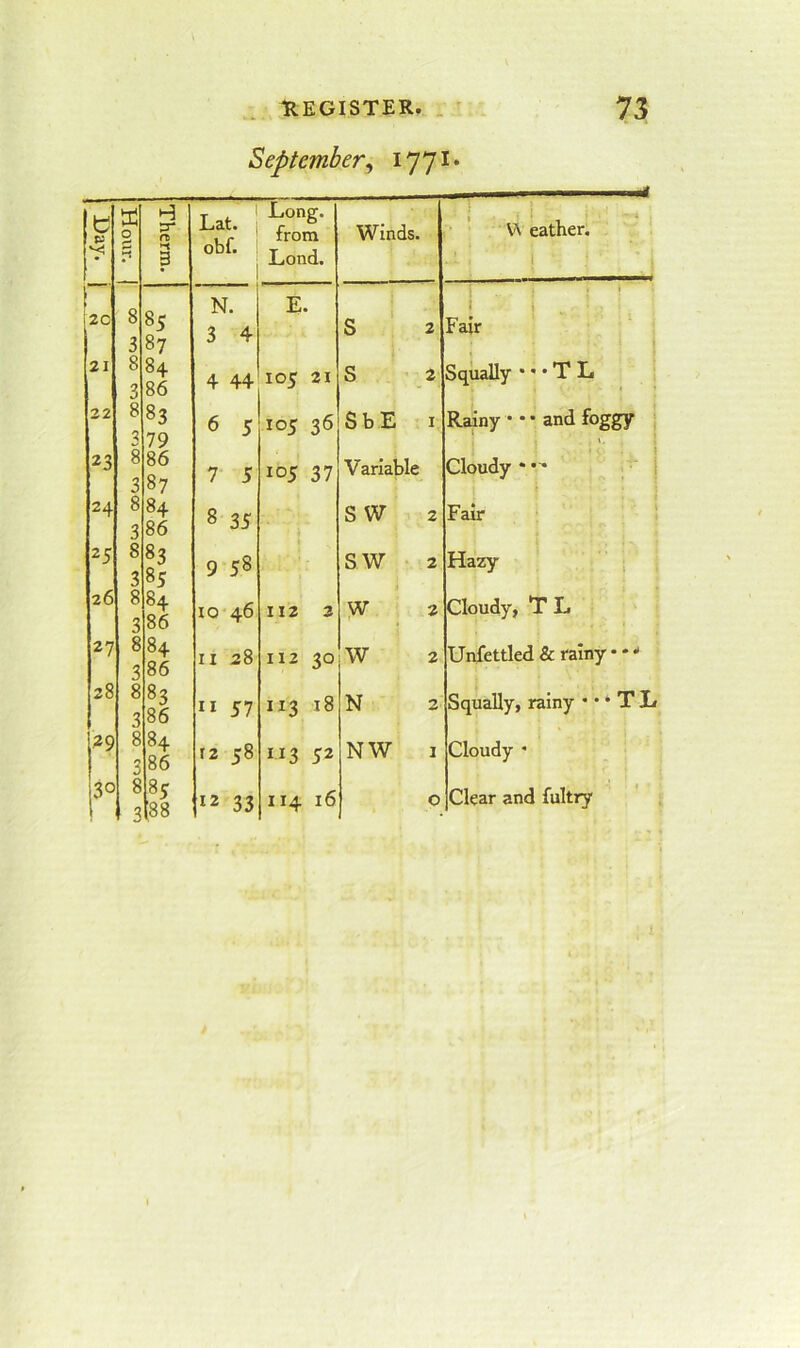 REGISTER. 73
September, 1771.
Day. Hour. Therm. Lat. obſ. Long. from Lond. Winds. Weather.
N. E.
20 8 85 3 4 S 2 Fair
3 87
21 8 84 4 44 105 21 S 2 Squally • • • T L
3 86
22 8 83 6 5 105 36 S b E 1 Rainy • • • and foggy
3 79
23 8 86 7 5 105 37 Variable Cloudy • • •
3 87
24 8 84 8 35 S W 2 Fair
3 86
25 8 83 9 58 S W 2 Hazy
3 85
26 8 84 10 46 112 2 W 2 Cloudy, T L
3 86
27 8 84 11 28 112 30 W 2 Unſettled & rainy • • •
3 86
28 8 83 11 57 113 18 N 2 Squally, rainy • • • T L
3 86
29 8 84 12 58 113 52 N W 1 Cloudy •
3 86
30 8 85 12 33 114 16 0 Clear and ſultry
3 88